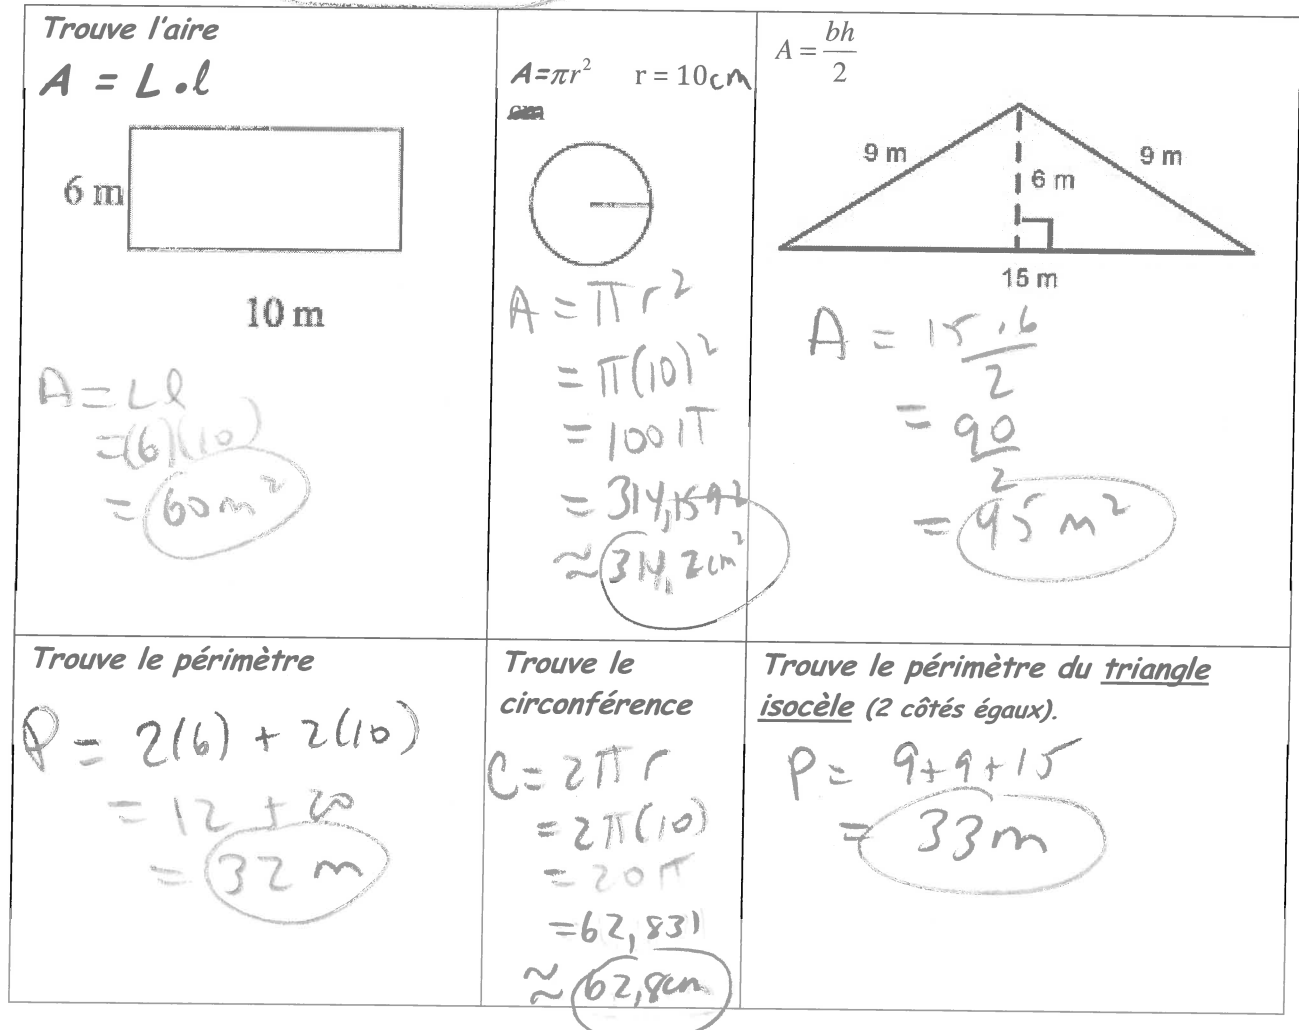 Trouve l'aire
A = L • l
6 m
10 m
A = L l
= (6)(10)
= 60 m²
A=πr² r = 10cm
cm
A = π r²
= π(10)²
= 100 π
= 314,1592
≈ 314,2 cm²
A = bh/2
9 m
9 m
6 m
15 m
A = 15.6/2
= 90/2
= 45 m²
Trouve le périmètre
P = 2(6) + 2(10)
= 12 + 20
= 32 m
Trouve le
circonférence
C = 2 π r
= 2π(10)
= 20π
= 62,831
≈ 62,8cm
Trouve le périmètre du triangle
isocèle (2 côtés égaux).
P = 9+9+15
= 33 m